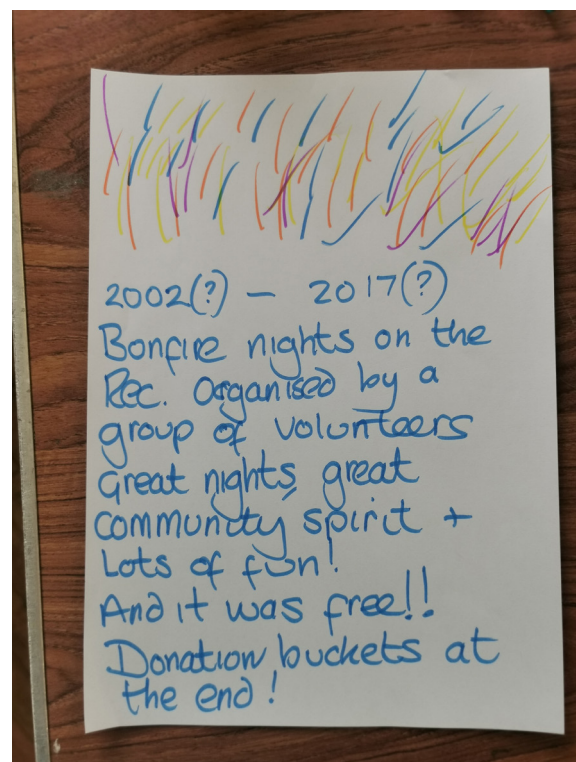 2002(?) - 2017(?)
Bonfire nights on the
Rec. Organised by a
group of volunteers
Great nights, great
community spirit +
Lots of fun!
And it was free!!
Donation buckets at
the end!